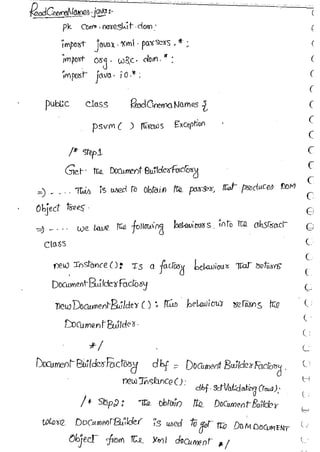 ReadCinemaNames.java:-
pk com.nareshit.dom;
import javax.xml.parsers.*;
import org.w3c.dom.*;
import java.io.*;
public class ReadCinemaNames {
psvm( ) throws Exception
/* Step1
Get the Document BuilderFactory
=) - . . . This is used to obtain the parser, that produces DOM
Object trees.
=) - . . . we have the following behaviours into the abstract
class
new Instance(): Is a factory behaviour that returns
DocumentBuilderFactory
newDocumentBuilder(): this behaviour returns the
DocumentBuilder.
*/
Document BuilderFactory dbf = Document BuilderFactory.
newInstance();
dbf.setValidating(true);
/* Step2: The obtain the DocumentBuilder
where DocumentBuilder is used to get the DOM DOCUMENT
Object from the xml document */